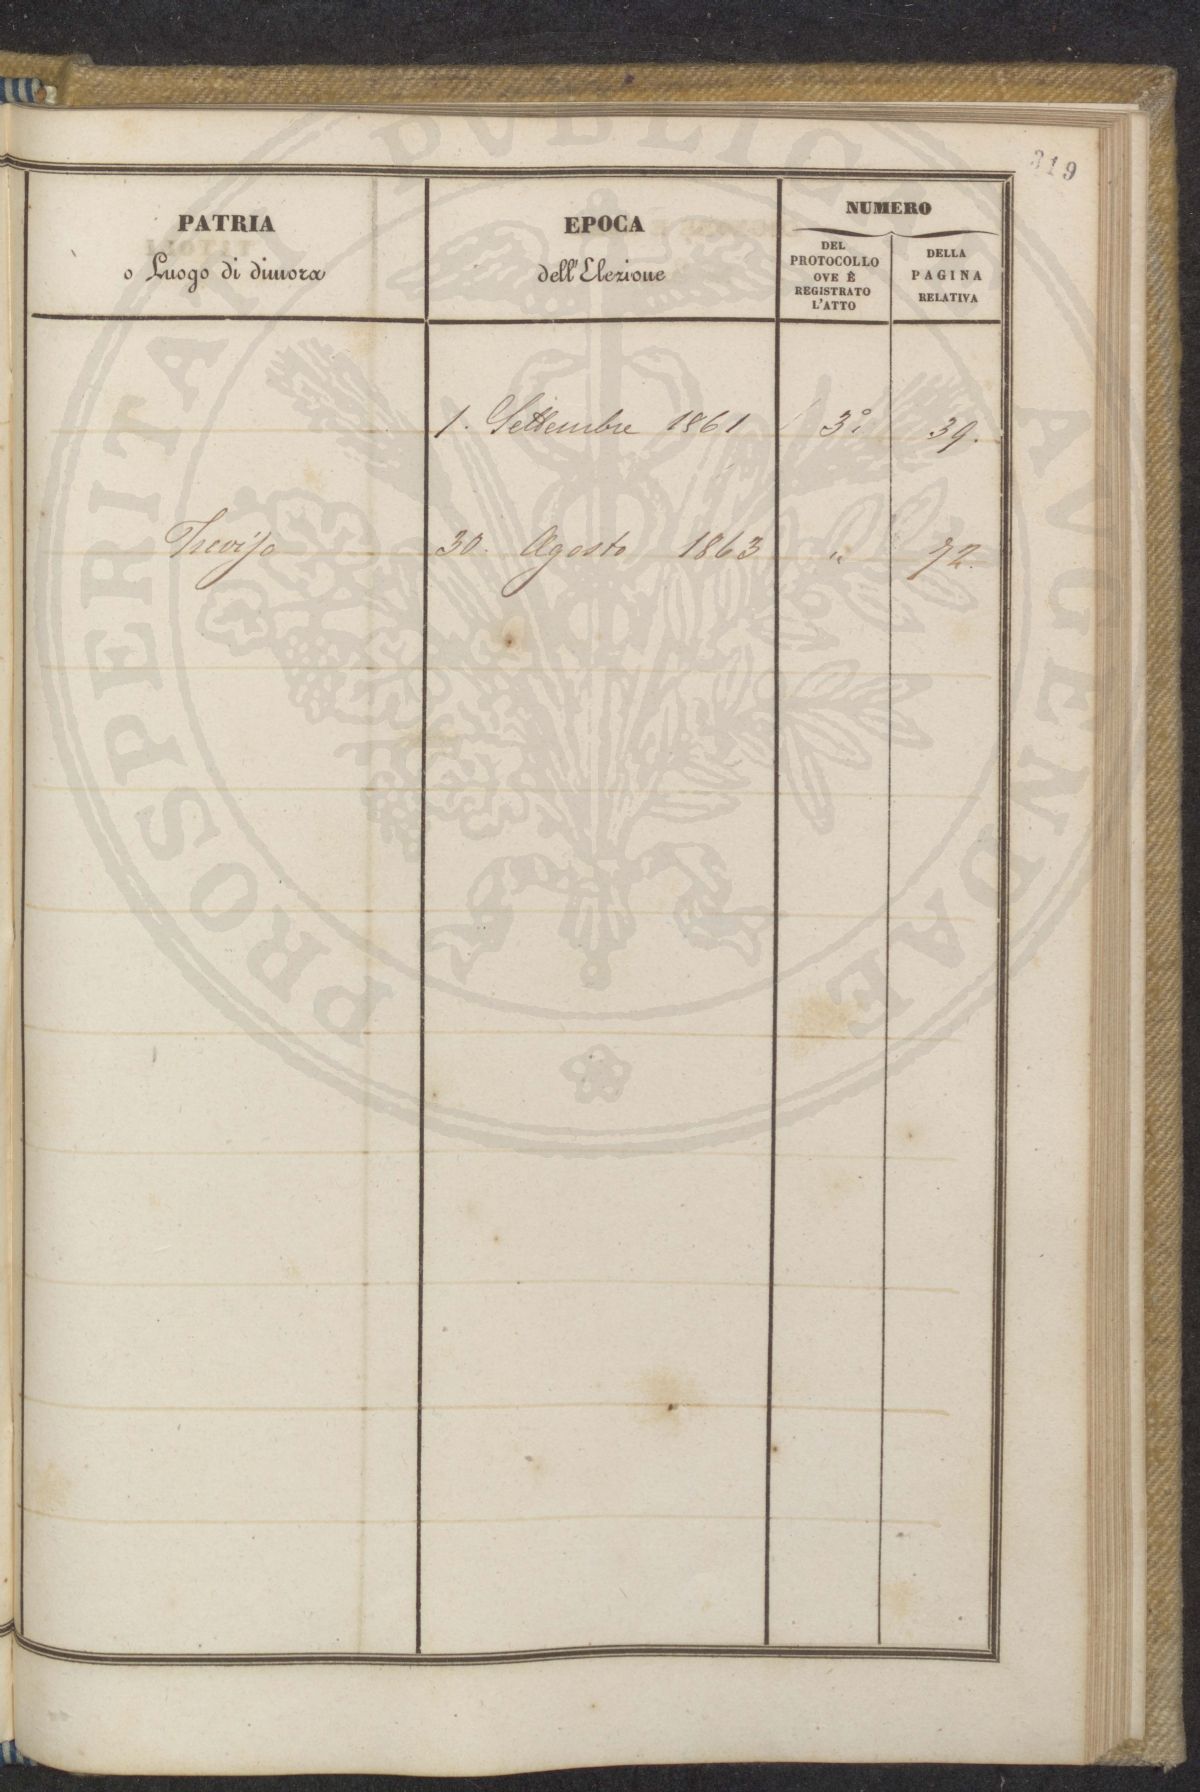 319
PATRIA
o Luogo di dimora
EPOCA
dell'Elezione
NUMERO
DEL
PROTOCOLLO
OVE È
REGISTRATO
L'ATTO
DELLA
PAGINA
RELATIVA
1. Settembre 1861 3° 39.
Treviso 30. Agosto 1863 " 72.
PROSPERITATI PVBLICAE AVGENDAE